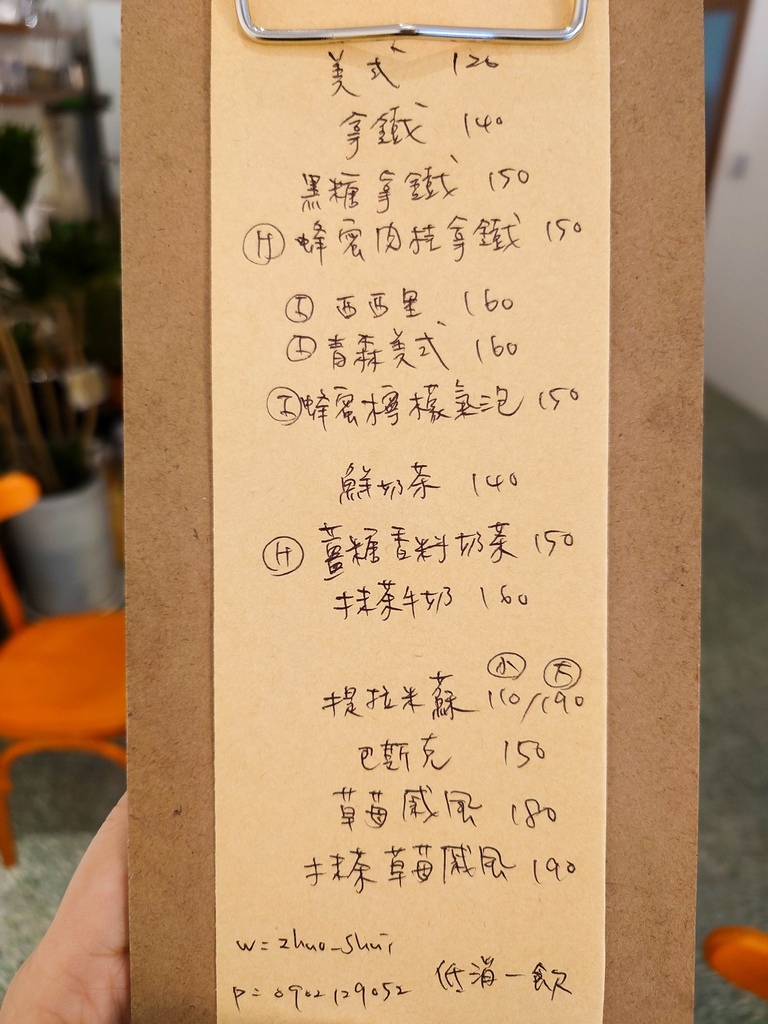 美式 120
拿鐵 140
黑糖拿鐵 150
Ⓗ 蜂蜜肉桂拿鐵 150
Ⓘ 西西里 160
Ⓘ 青森美式 160
Ⓘ 蜂蜜檸檬氣泡 150
鮮奶茶 140
Ⓗ 薑糖香料奶茶 150
抹茶牛奶 160
小 大
提拉米蘇 110/190
巴斯克 150
草莓戚風 180
抹茶草莓戚風 190
w = zhuo_shui
p = 0902129052 低消一飲